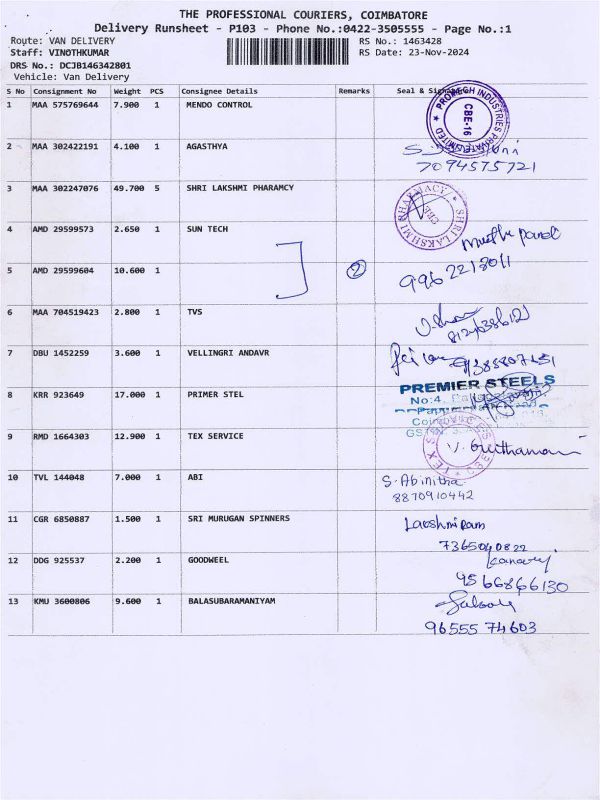 THE PROFESSIONAL COURIERS, COIMBATORE
Delivery Runsheet - P103 - Phone No.:0422-3505555 - Page No.:1
Route: VAN DELIVERY
RS No.: 1463428
Staff: VINOTHKUMAR
RS Date: 23-Nov-2024
DRS No.: DCJB146342801
Vehicle: Van Delivery
S No Consignment No Weight PCS Consignee Details Remarks Seal & Sign
1 MAA 575769644 7.900 1 MENDO CONTROL
PROTECH INDUSTRIES PRIVATE LIMITED
CBE-16
2 MAA 302422191 4.100 1 AGASTHYA
7094575721
3 MAA 302247076 49.700 5 SHRI LAKSHMI PHARAMCY
SHRI LAKSHMI PHARMACY
CBE
4 AMD 29599573 2.650 1 SUN TECH
5 AMD 29599604 10.600 1
2
996 2218011
6 MAA 704519423 2.800 1 TVS
7 DBU 1452259 3.600 1 VELLINGRI ANDAVR
8 KRR 923649 17.000 1 PRIMER STEL
PREMIER STEELS
No:4,
9 RMD 1664303 12.900 1 TEX SERVICE
TEX SERVICES
10 TVL 144048 7.000 1 ABI
S. Abinitha
8870910442
11 CGR 6850887 1.500 1 SRI MURUGAN SPINNERS
Lakshmi Ram
7365040822
12 DDG 925537 2.200 1 GOODWEEL
9566866130
13 KMU 3600806 9.600 1 BALASUBARAMANIYAM
96555 74603